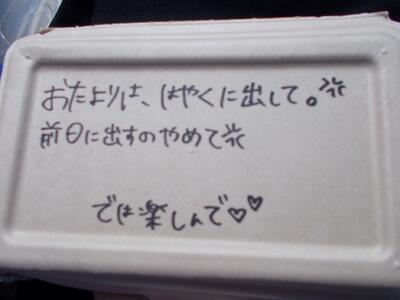 おたよりは、はやくに出して。💢
前日に出すのやめて💢
では楽しんで♡♡